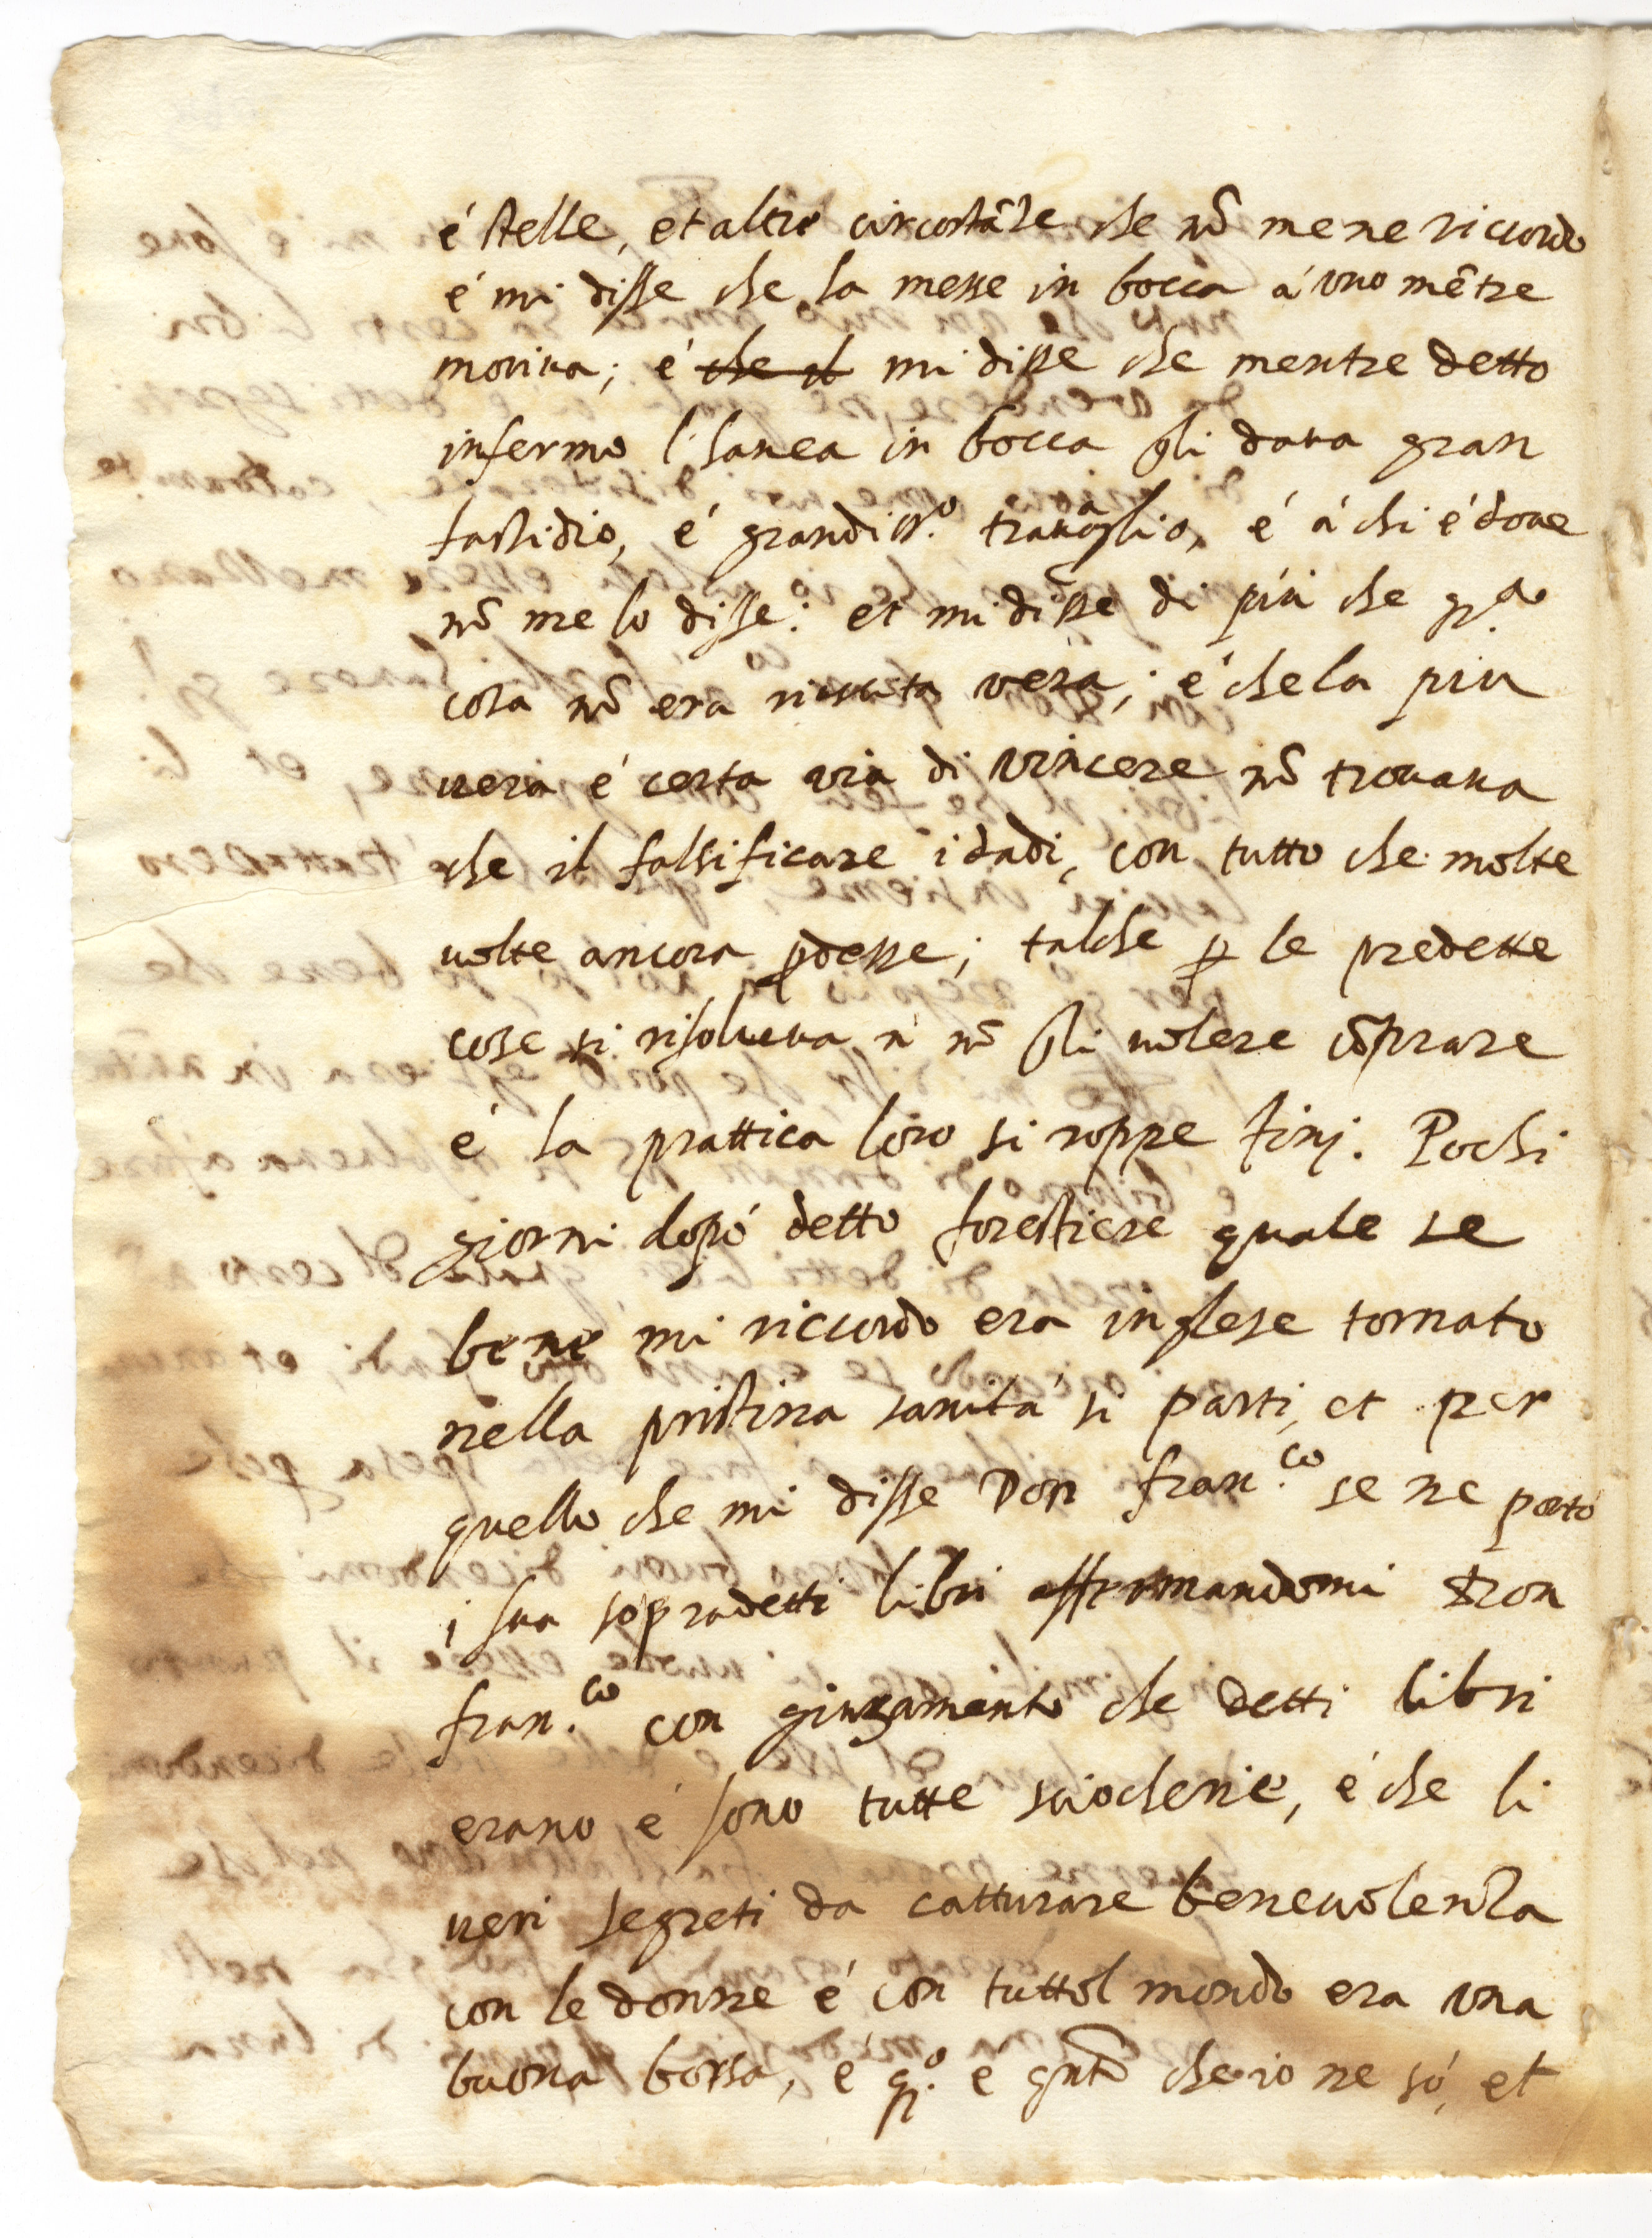 é stelle, et altre circostãze che nõ me ne riccordo
é mi disse che la messe in bocca á uno mẽtre
moriva; é che il mi disse che mentre detto
infermo l'havea in bocca gli dava gran
fastidio, é grandiss.º travaglio, é á chi é dove
nõ me lo disse: et mi disse di piú che q.ª
cosa nõ era riuscita vera; é che la piu
vera é certa via di vincere nõ trovava
che il falsificare i dadi, con tutto che molte
volte ancora pdesse; talche p le predette
cose si risolveva á nõ gli volere cõprare
é la prattica loro si roppe finj. Pochi
giorni dopó detto forestiere quale se
bene mi riccordo era inglese tornato
nella pristina sanitá si parti, et per
quello che mi disse Don fran.co se ne portó
i sua sopradetti libri affermandomi Don
fran.co con giuramento che detti libri
erano é sono tutte sciocherie, é che li
veri segreti da catturare benevolenza
con le donne é con tutto'l mondo era una
buona borsa, é q.º é qnto che io ne só, et